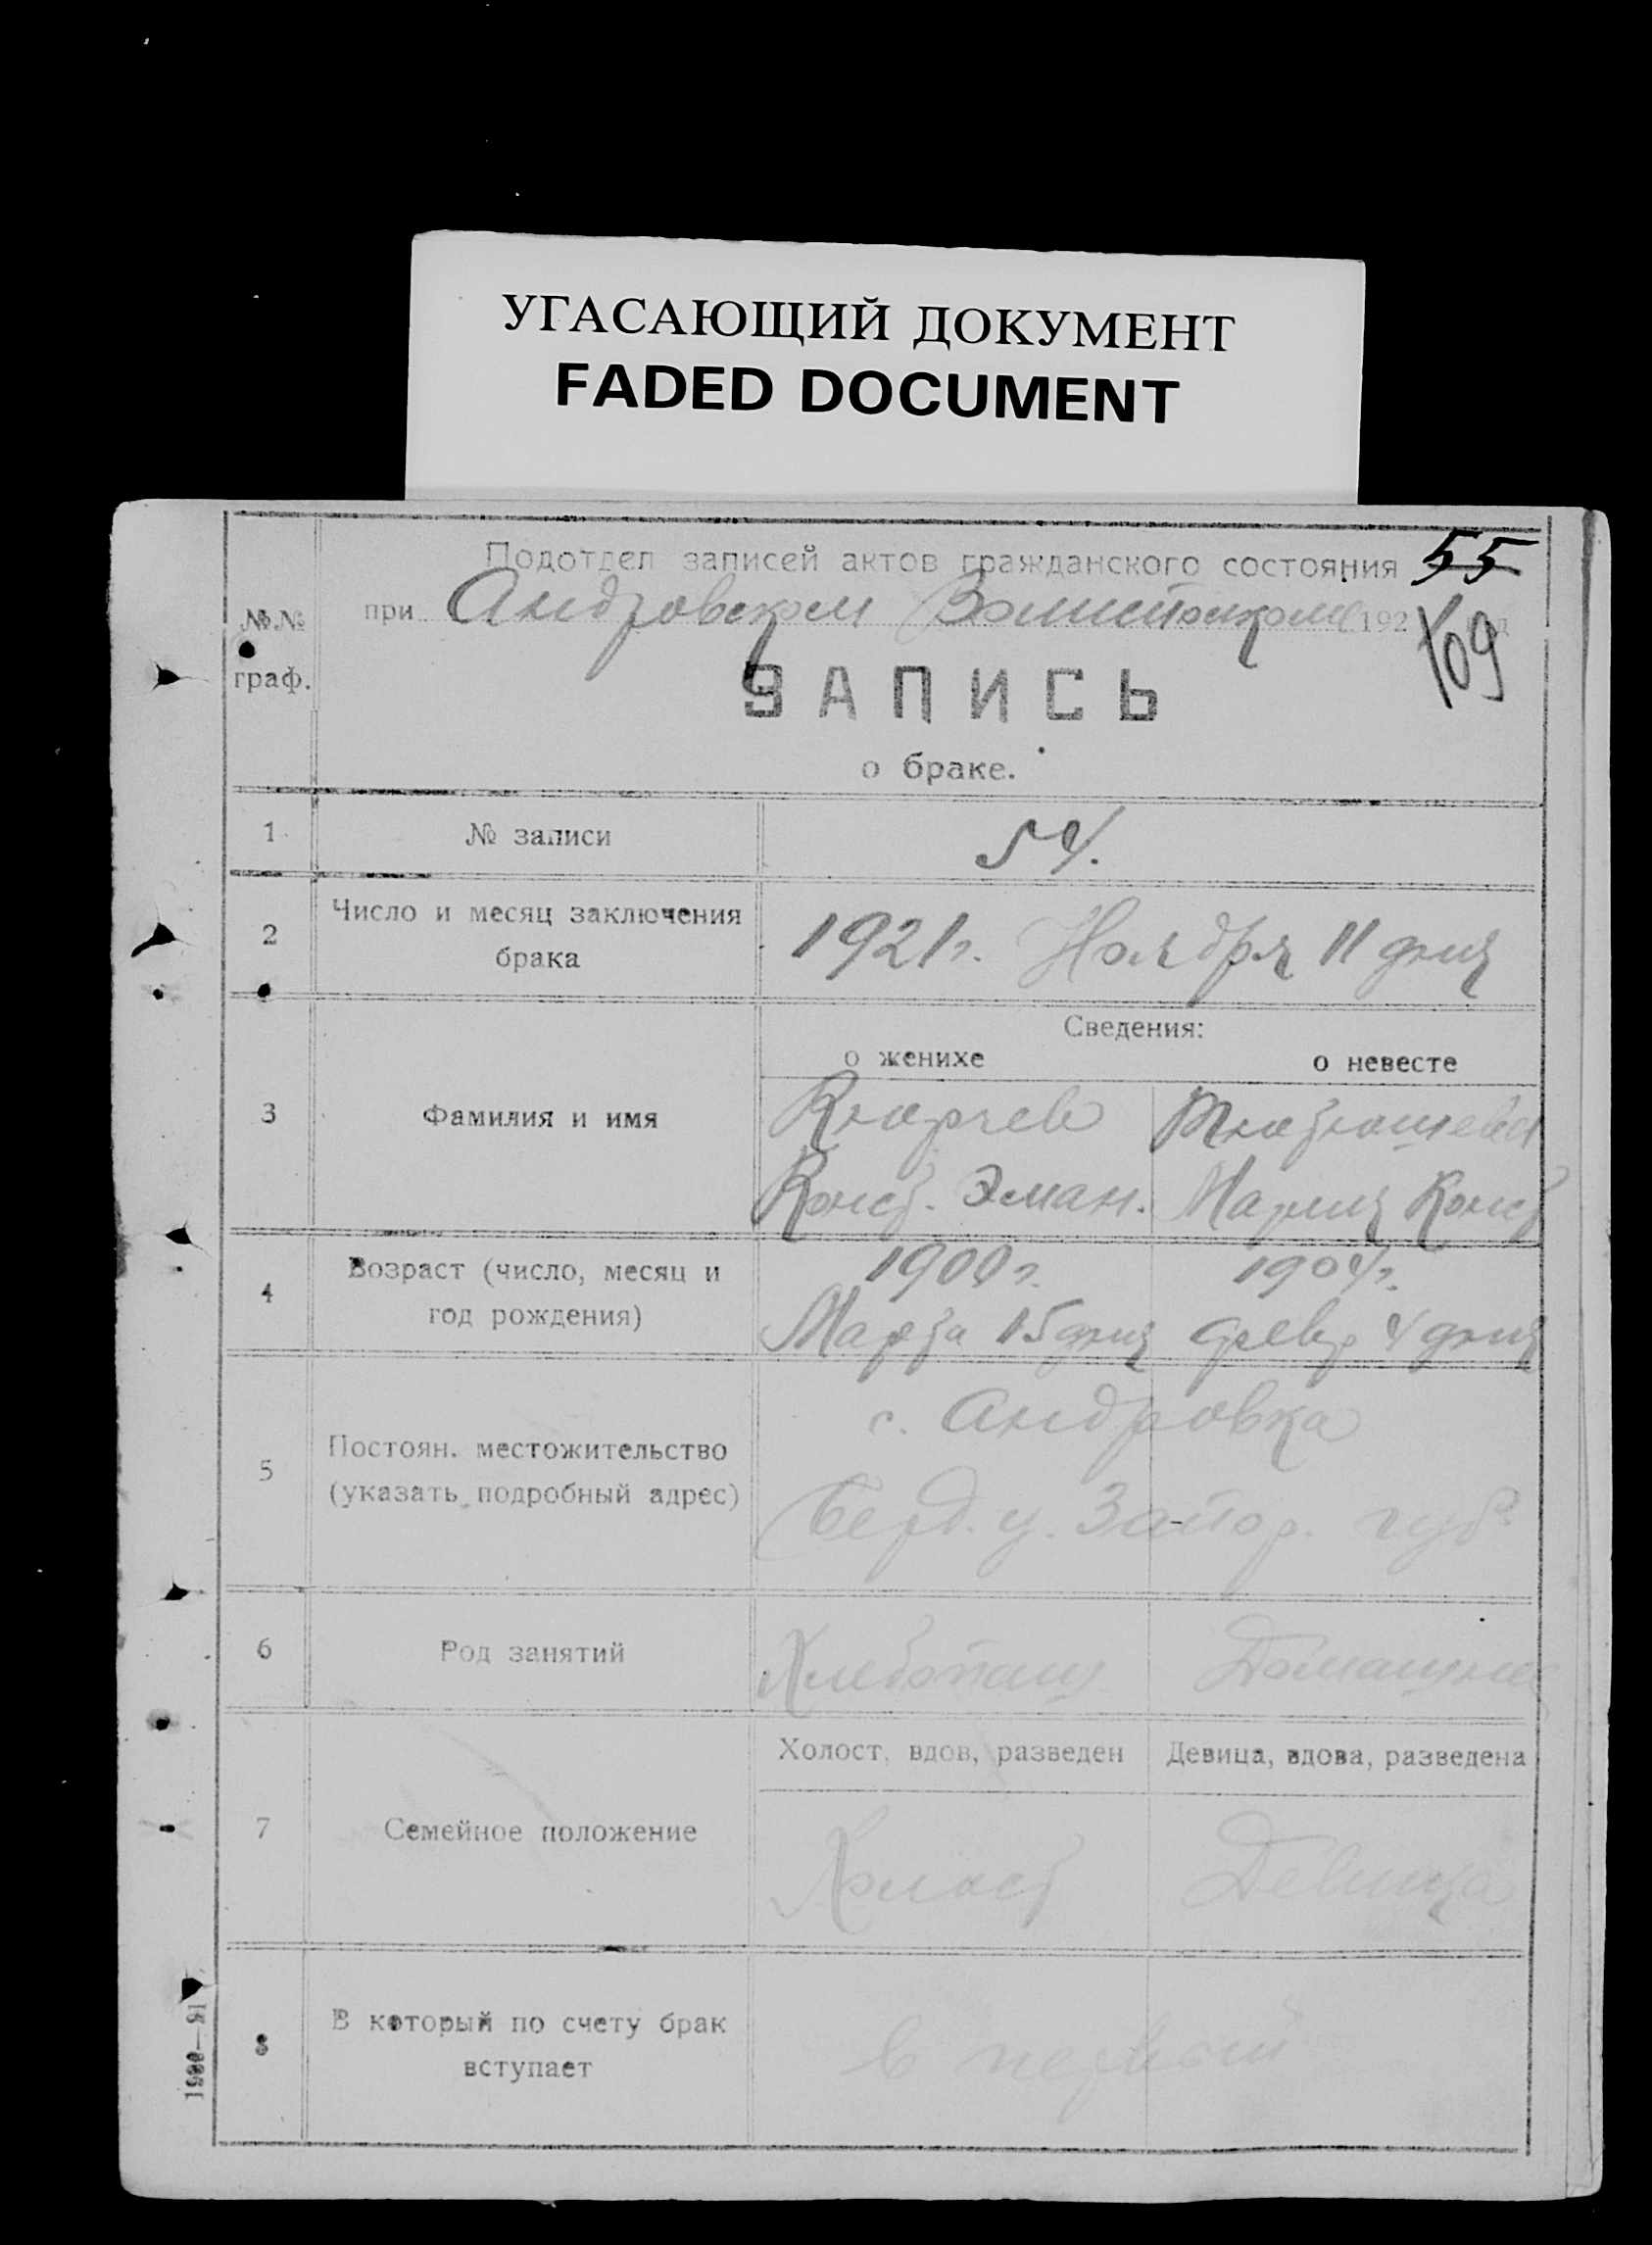 УГАСАЮЩИЙ ДОКУМЕНТ
FADED DOCUMENT
Подотдел записей актов гражданского состояния 55
№№ при Андровском Волисполкоме 192
109
граф.
ЗАПИСЬ
о браке.
1 № записи 54.
2 Число и месяц заключения брака 1921г. Ноября 11 дня
Сведения:
о женихе о невесте
3 Фамилия и имя Кюрчев Тютюшева
Конст. Эман. Мария Конст
4 Возраст (число, месяц и год рождения) 1900г. 1904г.
Марта 15 дня февр 4 дня
5 Постоян. местожительство (указать подробный адрес) с. Андровка
Берд. у. Запор. губ.
6 Род занятий Хлебопаш Домашние
Холост, вдов, разведен Девица, вдова, разведена
7 Семейное положение Холост Девица
8 В который по счету брак вступает в первый
1900—91